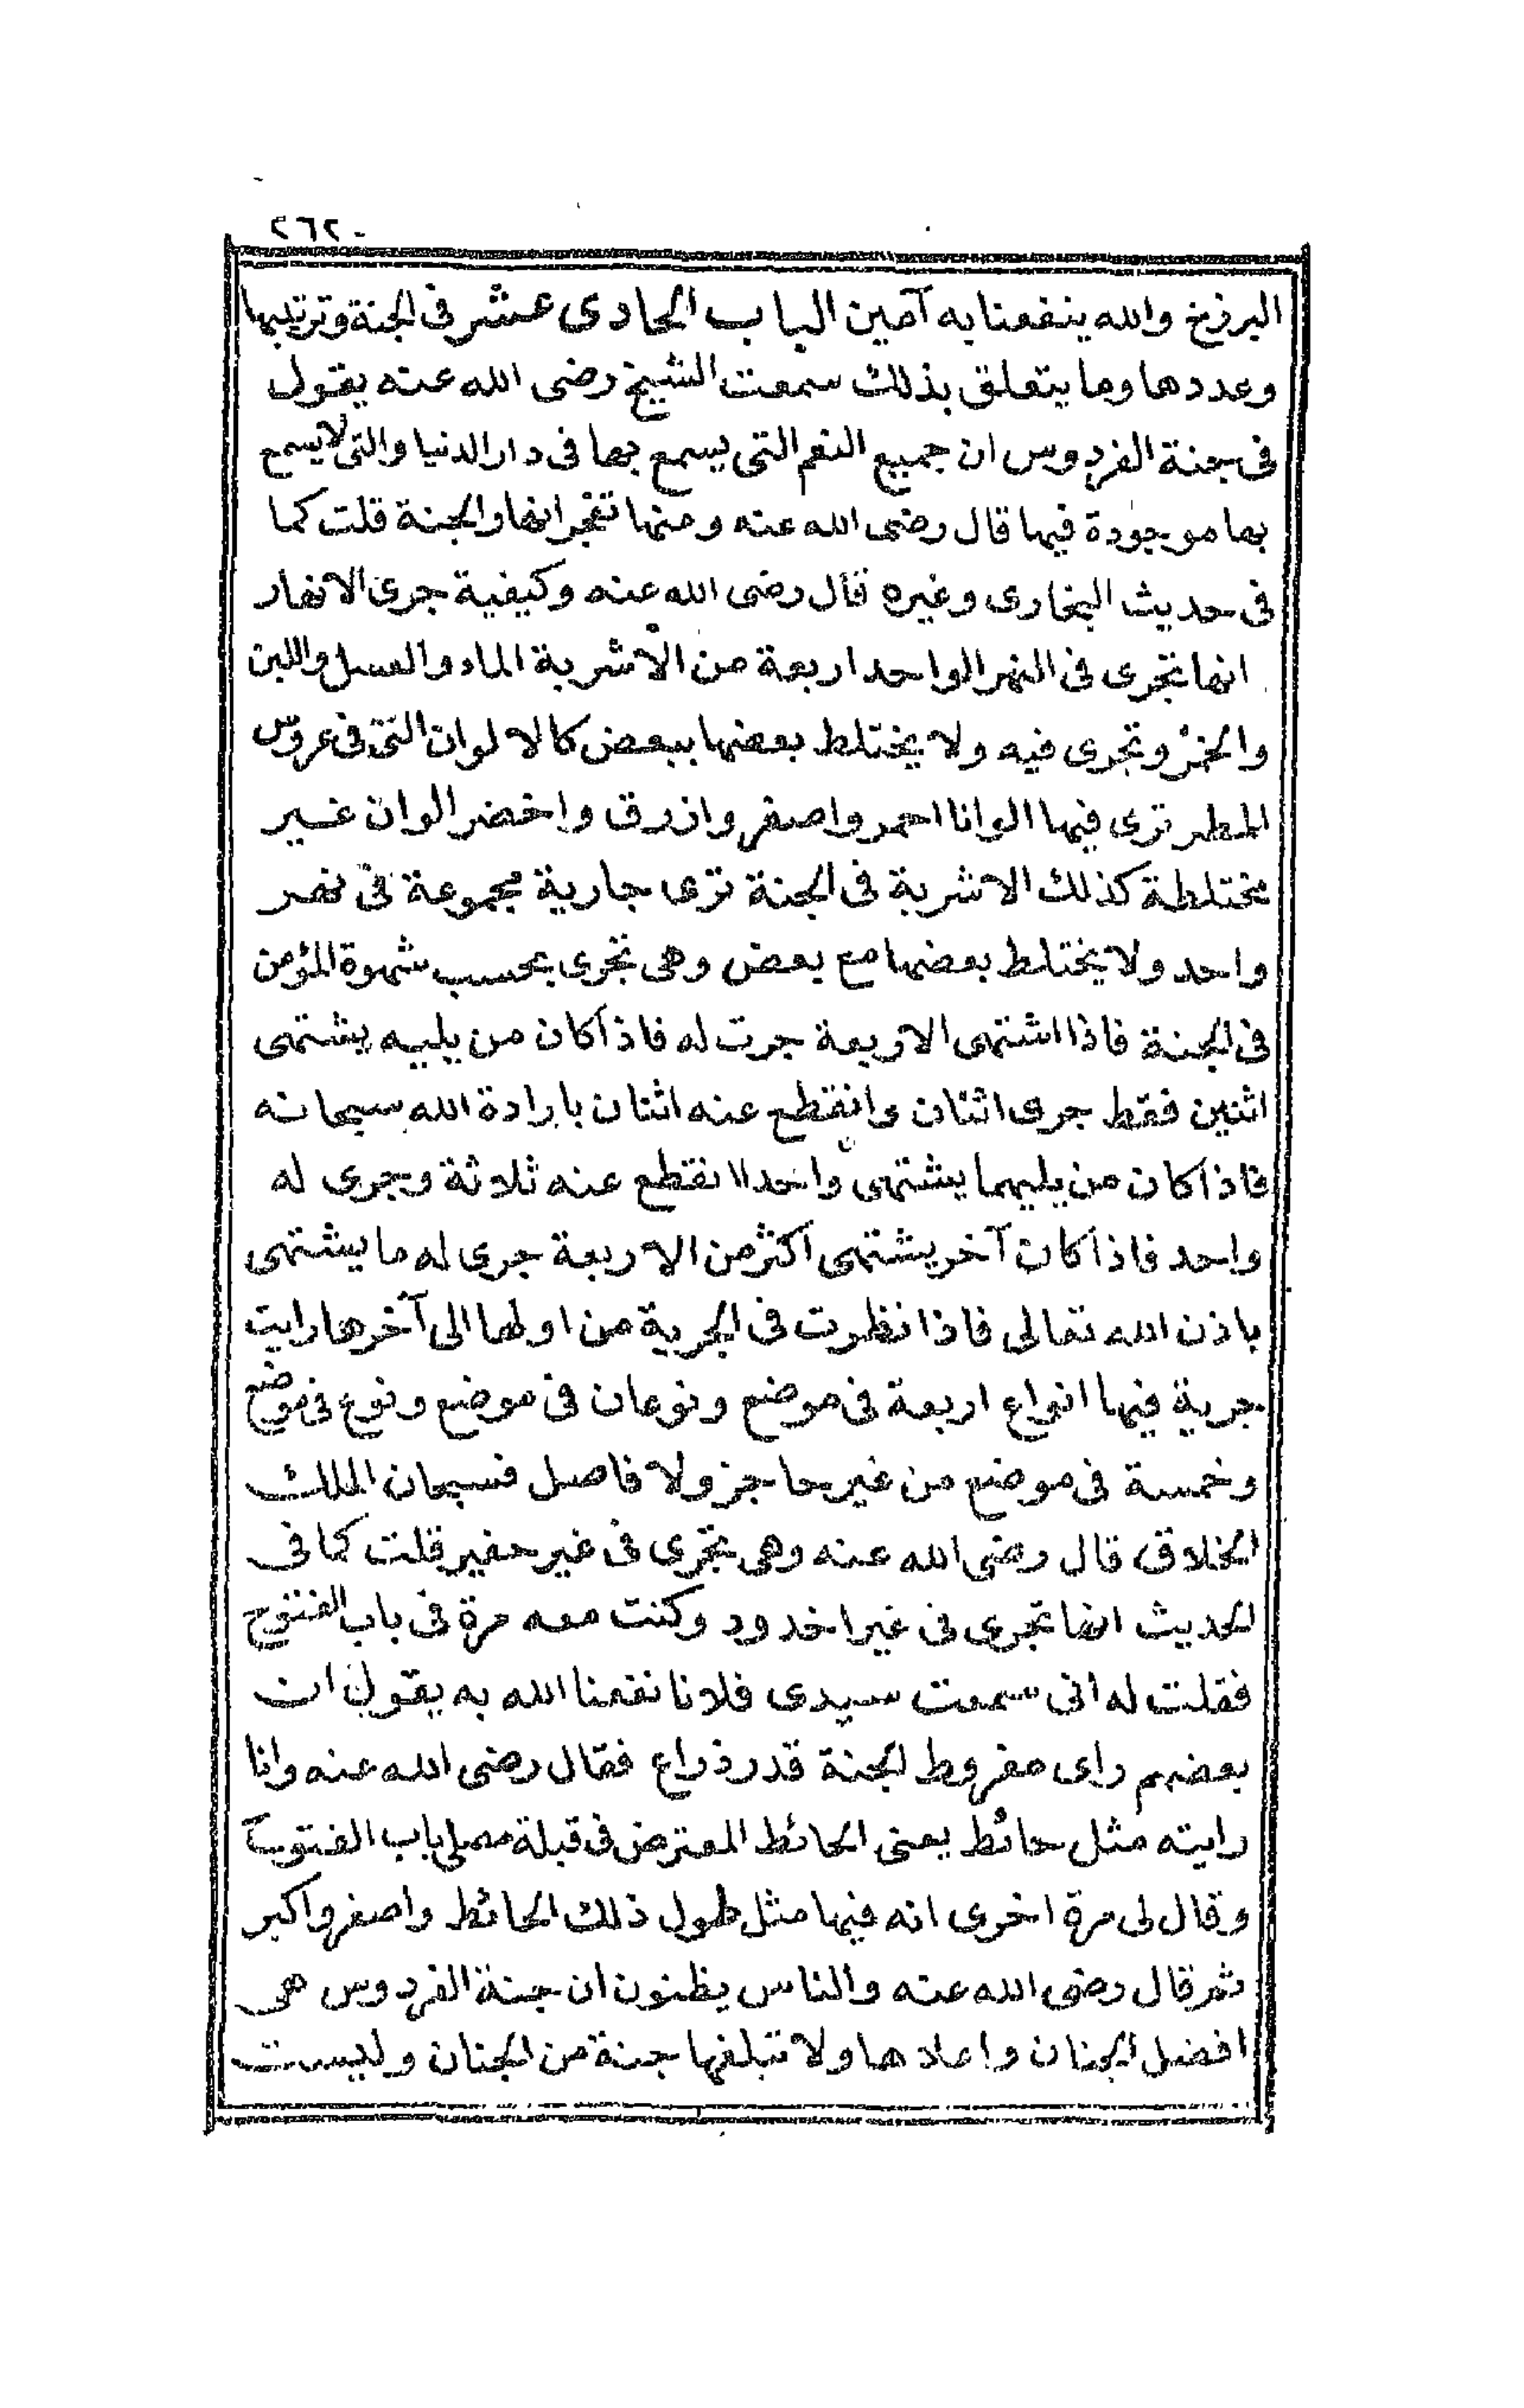 ٢٦٢
البرزخ والله ينفعنا به آمين الباب الحادى عشر فى الجنة وترتيبها
وعددها وما يتعلق بذلك سمعت الشيخ رضى الله عنه يقول
فى جنة الفردوس ان جميع النعم التى يسمع بها فى دار الدنيا والتى لا يسمع
بها موجودة فيها قال رضى الله عنه ومنها تفجر انهار الجنة قلت كما
فى حديث البخارى وغيره قال رضى الله عنه وكيفية جرى الانهار
انها تجرى فى النهر الواحد اربعة من الاشربة الماء والعسل واللبن
والخمر وتجرى فيه ولا يختلط بعضها ببعض كالالوان التى فى عروس
المطر ترى فيها الوانا احمر واصفر وازرق واخضر الوان غير
مختلطة كذلك الاشربة فى الجنة ترى جارية مجموعة فى نهر
واحد ولا يختلط بعضها مع بعض وهى تجرى بحسب شهوة المؤمن
فى الجنة فاذا اشتهى الاربعة جرت له فاذا كان من يليه يشتهى
اثنين فقط جرى اثنان وانقطع عنه اثنان بارادة الله سبحانه
فاذا كان من يليهما يشتهى واحدا انقطع عنه ثلاثة ويجرى له
واحد فاذا كان آخر يشتهى اكثر من الاربعة جرى له ما يشتهى
باذن الله تعالى فاذا نظرت فى الجرية من اولها الى آخرها رايت
جرية فيها انواع اربعة فى موضع ونوعان فى موضع ونوع فى موضع
وخمسة فى موضع من غير حاجز ولا فاصل فسبحان الملك
الخلاق قال رضى الله عنه وهى تجرى فى غير حفير قلت كما فى
الحديث انها تجرى فى غير اخدود وكنت معه مرة فى باب الفتوح
فقلت له انى سمعت سيدى فلانا نفعنا الله به يقول ان
بعضهم راى مفروط الجنة قدر ذراع فقال رضى الله عنه وانا
رايته مثل حائط يعنى الحائط المعترض فى قبلة مصلى باب الفتوح
وقال لى مرة اخرى انه فيها مثل طول ذلك الحائط واصغر واكبر
ثم قال رضى الله عنه والناس يظنون ان جنة الفردوس هى
افضل الجنان واعلاها ولا تبلغها جنة من الجنان وليست